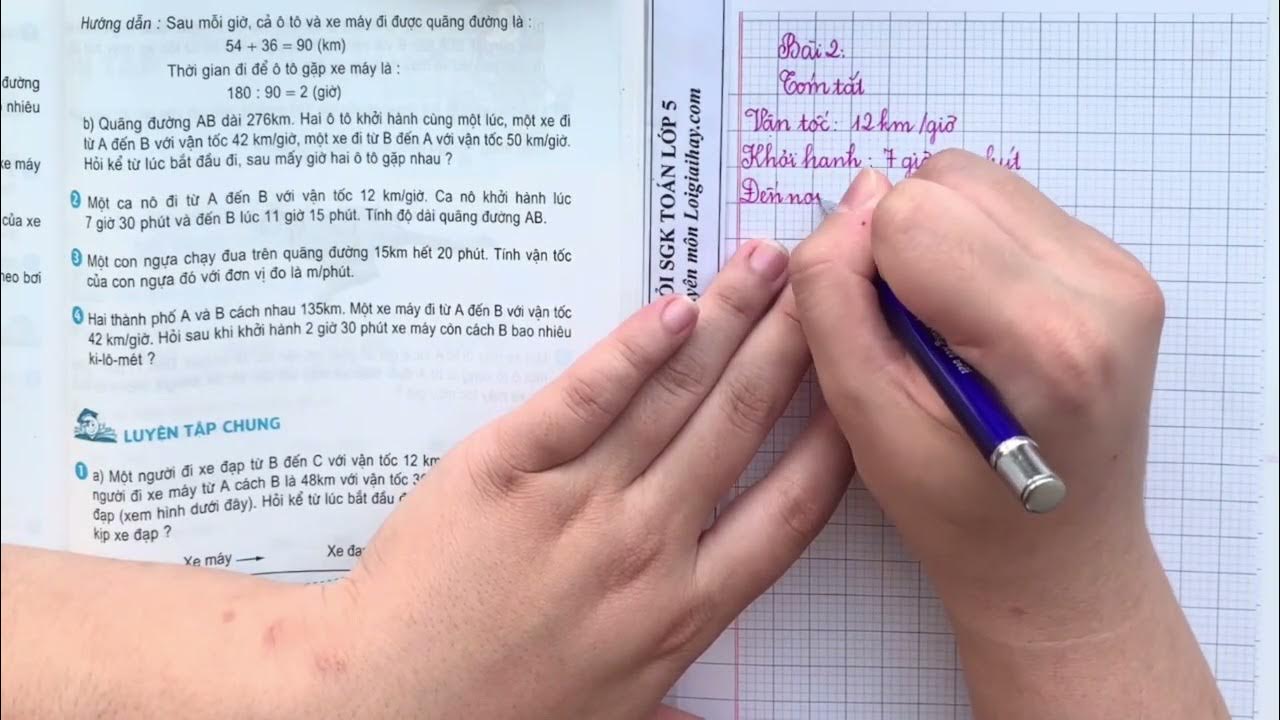 Hướng dẫn : Sau mỗi giờ, cả ô tô và xe máy đi được quãng đường là :
54 + 36 = 90 (km)
Thời gian đi để ô tô gặp xe máy là :
180 : 90 = 2 (giờ)
b) Quãng đường AB dài 276km. Hai ô tô khởi hành cùng một lúc, một xe đi
từ A đến B với vận tốc 42 km/giờ, một xe đi từ B đến A với vận tốc 50 km/giờ.
Hỏi kể từ lúc bắt đầu đi, sau mấy giờ hai ô tô gặp nhau ?
2 Một ca nô đi từ A đến B với vận tốc 12 km/giờ. Ca nô khởi hành lúc
7 giờ 30 phút và đến B lúc 11 giờ 15 phút. Tính độ dài quãng đường AB.
3 Một con ngựa chạy đua trên quãng đường 15km hết 20 phút. Tính vận tốc
của con ngựa đó với đơn vị đo là m/phút.
4 Hai thành phố A và B cách nhau 135km. Một xe máy đi từ A đến B với vận tốc
42 km/giờ. Hỏi sau khi khởi hành 2 giờ 30 phút xe máy còn cách B bao nhiêu
ki-lô-mét ?
LUYỆN TẬP CHUNG
1 a) Một người đi xe đạp từ B đến C với vận tốc 12 km
người đi xe máy từ A cách B là 48km với vận tốc 3
đạp (xem hình dưới đây). Hỏi kể từ lúc bắt đầu
kịp xe đạp ?
Xe máy
Xe đạ
đường
nhiêu
xe máy
của xe
heo bơi
SGK TOÁN LỚP 5
môn Loigiaihay.com
Bài 2:
Tóm tắt
Vận tốc: 12 km/giờ
Khởi hanh: 7 gi
Đến